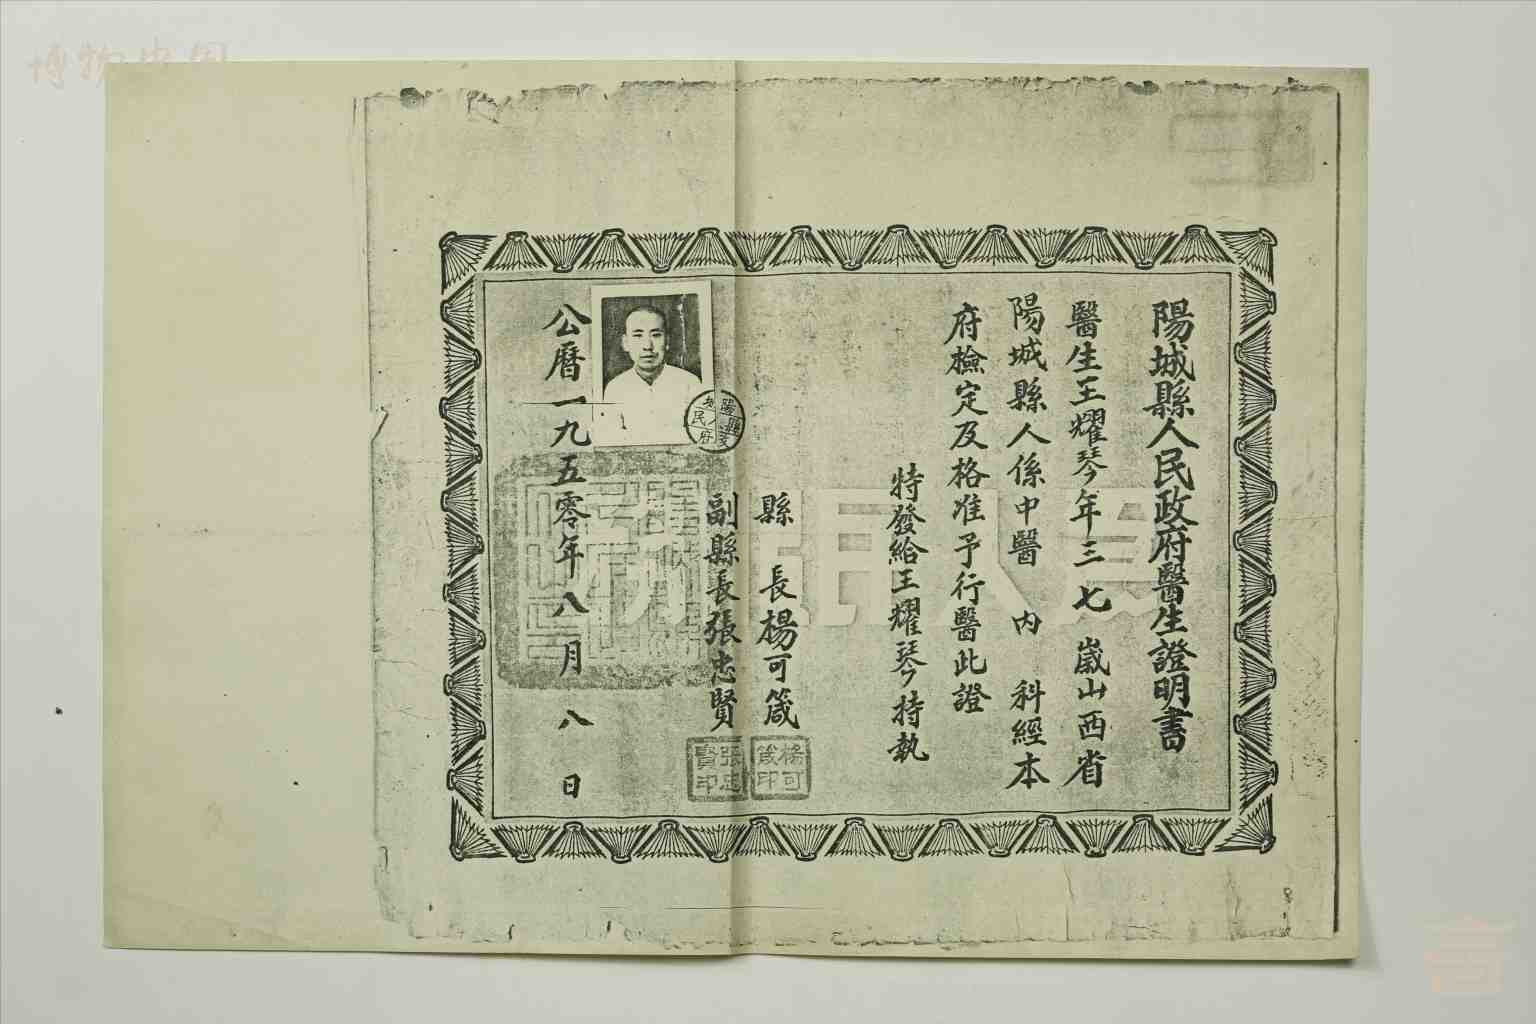 陽城縣人民政府醫生證明書
醫生王耀琴年三七歲山西省
陽城縣人係中醫內科經本
府檢定及格准予行醫此證
特發給王耀琴持執
縣長楊可箴
副縣長張忠賢
公曆一九五零年八月八日
楊可箴印
張忠賢印
博物中国